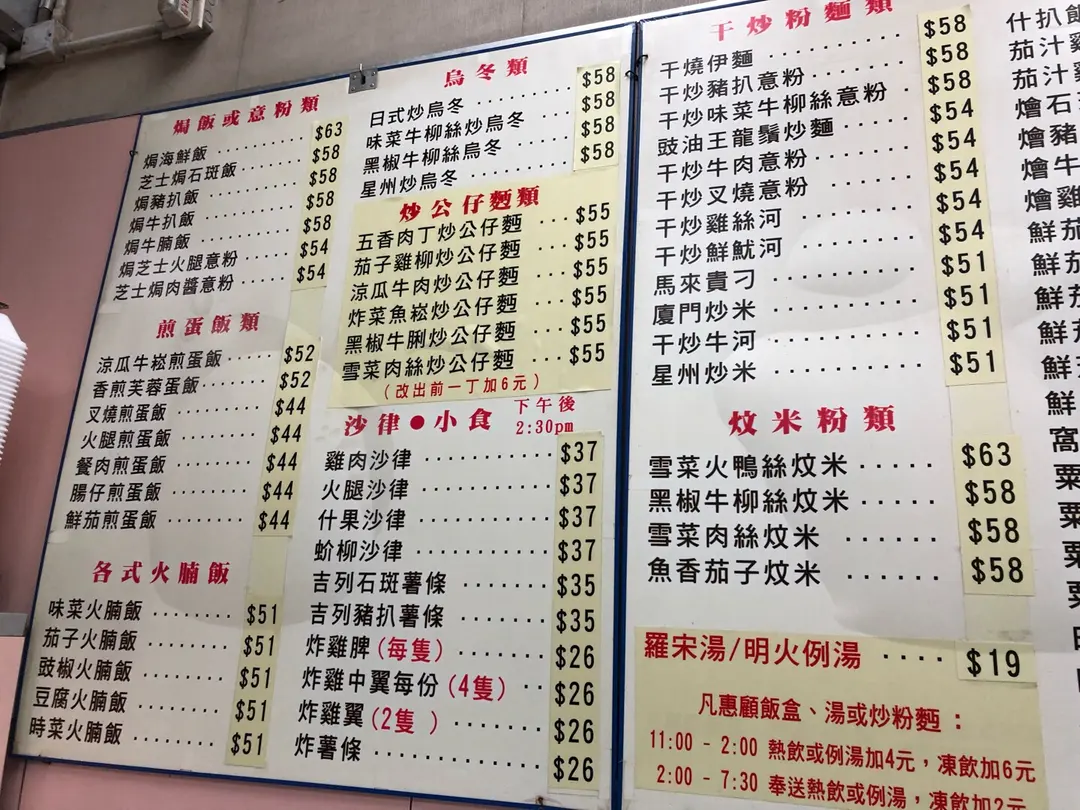 焗飯或意粉類
焗海鮮飯 ·········· $63
芝士焗石斑飯 ····· $58
焗豬扒飯 ·········· $58
焗牛扒飯 ·········· $58
焗牛腩飯 ·········· $58
焗芝士火腿意粉 ···· $54
芝士焗肉醬意粉 ···· $54
煎蛋飯類
涼瓜牛崧煎蛋飯 ····· $52
香煎芙蓉蛋飯 ······· $52
叉燒煎蛋飯 ········ $44
火腿煎蛋飯 ········ $44
餐肉煎蛋飯 ········ $44
腸仔煎蛋飯 ········ $44
鮮茄煎蛋飯 ········ $44
各式火腩飯
味菜火腩飯 ········ $51
茄子火腩飯 ········ $51
豉椒火腩飯 ········ $51
豆腐火腩飯 ········ $51
時菜火腩飯 ········ $51
烏冬類
日式炒烏冬 ········ $58
味菜牛柳絲炒烏冬 ··· $58
黑椒牛柳絲烏冬 ····· $58
星州炒烏冬 ········ $58
炒公仔麵類
五香肉丁炒公仔麵 ··· $55
茄子雞柳炒公仔麵 ··· $55
涼瓜牛肉炒公仔麵 ··· $55
炸菜魚崧炒公仔麵 ··· $55
黑椒牛脷炒公仔麵 ··· $55
雪菜肉絲炒公仔麵 ··· $55
(改出前一丁加6元)
沙律●小食 下午後
2:30pm
雞肉沙律 ············ $37
火腿沙律 ············ $37
什果沙律 ············ $37
蚧柳沙律 ············ $37
吉列石斑薯條 ········ $35
吉列豬扒薯條 ········ $35
炸雞脾(每隻) ········ $26
炸雞中翼每份(4隻) ·· $26
炸雞翼(2隻 ) ········ $26
炸薯條 ·············· $26
干炒粉麵類
干燒伊麵 ·········· $58
干炒豬扒意粉 ······· $58
干炒味菜牛柳絲意粉 · $58
豉油王龍鬚炒麵 ····· $54
干炒牛肉意粉 ······· $54
干炒叉燒意粉 ······· $54
干炒雞絲河 ········ $54
干炒鮮魷河 ········ $54
馬來貴刁 ·········· $51
廈門炒米 ·········· $51
干炒牛河 ·········· $51
星州炒米 ·········· $51
炆米粉類
雪菜火鴨絲炆米 ····· $63
黑椒牛柳絲炆米 ····· $58
雪菜肉絲炆米 ······ $58
魚香茄子炆米 ······ $58
羅宋湯/明火例湯 ···· $19
凡惠顧飯盒、湯或炒粉麵：
11:00 - 2:00 熱飲或例湯加4元，凍飲加6元
2:00 - 7:30 奉送熱飲或例湯，凍飲加2元
什扒飯
茄汁
茄汁
燴石
燴豬
燴牛
燴雞
鮮茄
鮮茄
鮮茄
鮮茄
鮮
窩
粟
粟
粟